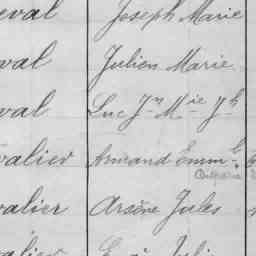 eval Joseph Marie
val Julien Marie
val Luc Jn Mie Jh
valier Armand Emmel
valier Arsène Jules